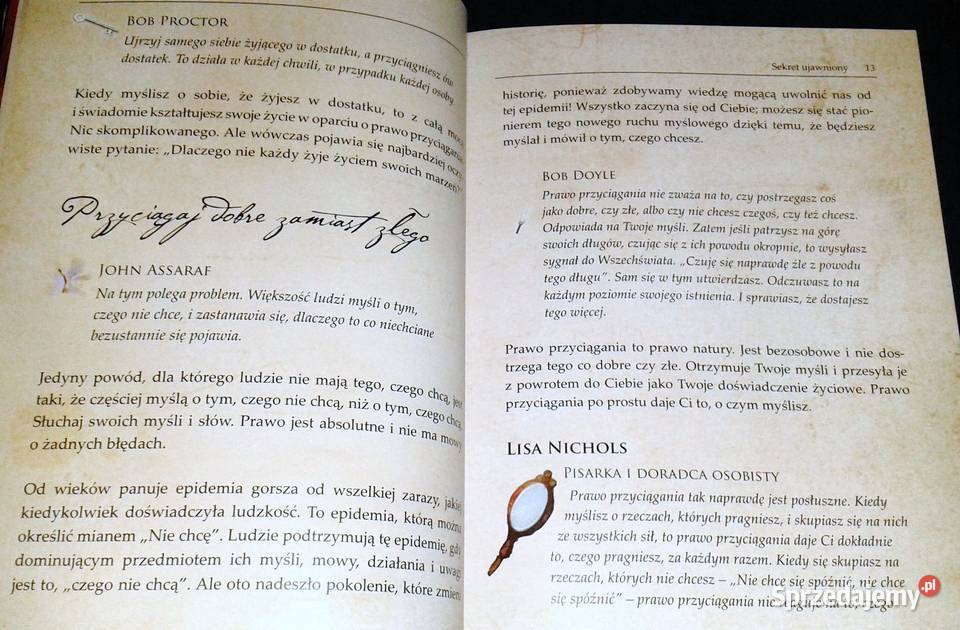 BOB PROCTOR
Ujrzyj samego siebie żyjącego w dostatku, a przyciągniesz ów
dostatek. To działa w każdej chwili, w przypadku każdej osoby
Kiedy myślisz o sobie, że żyjesz w dostatku, to z całą mocą
i świadomie kształtujesz swoje życie w oparciu o prawo przyciągania
Nic skomplikowanego. Ale wówczas pojawia się najbardziej oczy
wiste pytanie: „Dlaczego nie każdy żyje życiem swoich marzeń?"
Przyciągaj dobre zamiast złego
JOHN ASSARAF
Na tym polega problem. Większość ludzi myśli o tym,
czego nie chce, i zastanawia się, dlaczego to co niechciane
bezustannie się pojawia.
Jedyny powód, dla którego ludzie nie mają tego, czego chcą, jest
taki, że częściej myślą o tym, czego nie chcą, niż o tym, czego chcą.
Słuchaj swoich myśli i słów. Prawo jest absolutne i nie ma mowy
o żadnych błędach.
Od wieków panuje epidemia gorsza od wszelkiej zarazy, jakiej
kiedykolwiek doświadczyła ludzkość. To epidemia, którą można
określić mianem „Nie chcę". Ludzie podtrzymują tę epidemię, gdy
dominującym przedmiotem ich myśli, mowy, działania i uwagi
jest to, „czego nie chcą". Ale oto nadeszło pokolenie, które zmieni
Sekret ujawniony 13
historię, ponieważ zdobywamy wiedzę mogącą uwolnić nas od
tej epidemii! Wszystko zaczyna się od Ciebie; możesz się stać pio-
nierem tego nowego ruchu myślowego dzięki temu, że będziesz
myślał i mówił o tym, czego chcesz.
BOB DOYLE
Prawo przyciągania nie zważa na to, czy postrzegasz coś
jako dobre, czy złe, albo czy nie chcesz czegoś, czy też chcesz.
Odpowiada na Twoje myśli. Zatem jeśli patrzysz na górę
swoich długów, czując się z ich powodu okropnie, to wysyłasz
sygnał do Wszechświata. „Czuję się naprawdę źle z powodu
tego długu". Sam się w tym utwierdzasz. Odczuwasz to na
każdym poziomie swojego istnienia. I sprawiasz, że dostajesz
tego więcej.
Prawo przyciągania to prawo natury. Jest bezosobowe i nie dos-
trzega tego co dobre czy złe. Otrzymuje Twoje myśli i przesyła je
z powrotem do Ciebie jako Twoje doświadczenie życiowe. Prawo
przyciągania po prostu daje Ci to, o czym myślisz.
LISA NICHOLS
PISARKA I DORADCA OSOBISTY
Prawo przyciągania tak naprawdę jest posłuszne. Kiedy
myślisz o rzeczach, których pragniesz, i skupiasz się na nich
ze wszystkich sił, to prawo przyciągania daje Ci dokładnie
to, czego pragniesz, za każdym razem. Kiedy się skupiasz na
rzeczach, których nie chcesz – „Nie chcę się spóźnić, nie chcę
się spóźnić" – prawo przyciągania nie reaguje na to, czego
Sprzedajemy.pl